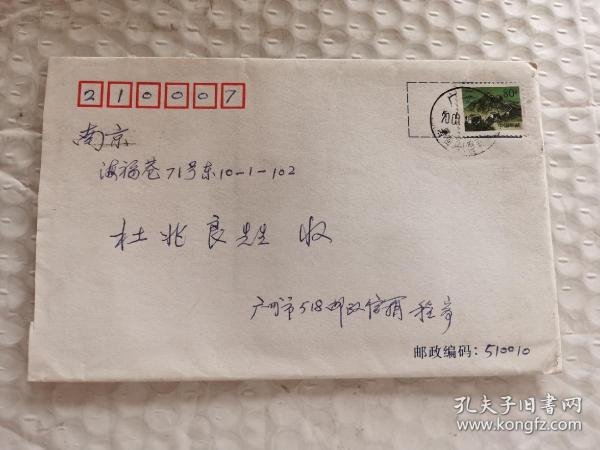 210007
80分
中国邮政
广
南京
海福巷71号东10-1-102
杜兆良先生 收
广州市518邮政信箱 程岸
邮政编码：510010
孔夫子旧书网
www.kongfz.com